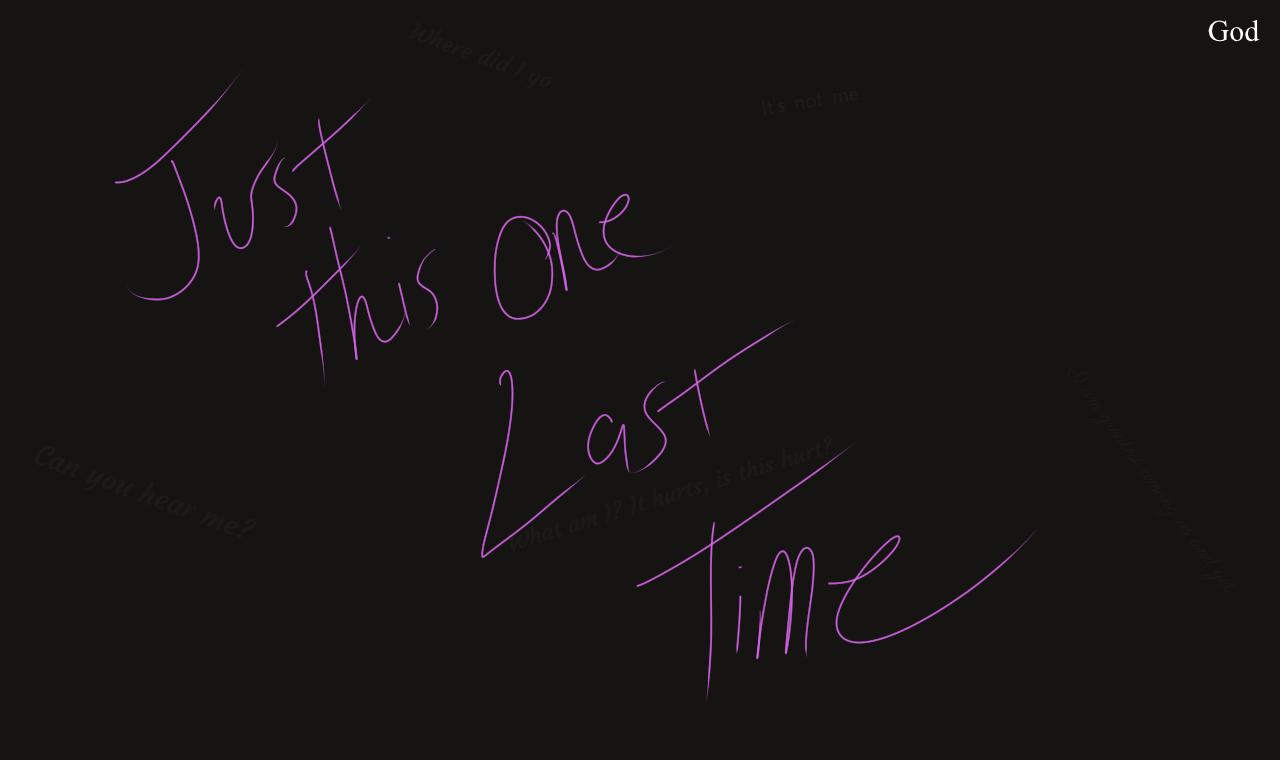 God
Where did I go
It's not me
Just
this One
Last
Time
Can you hear me?
What am I? It hurts, is this hurt?